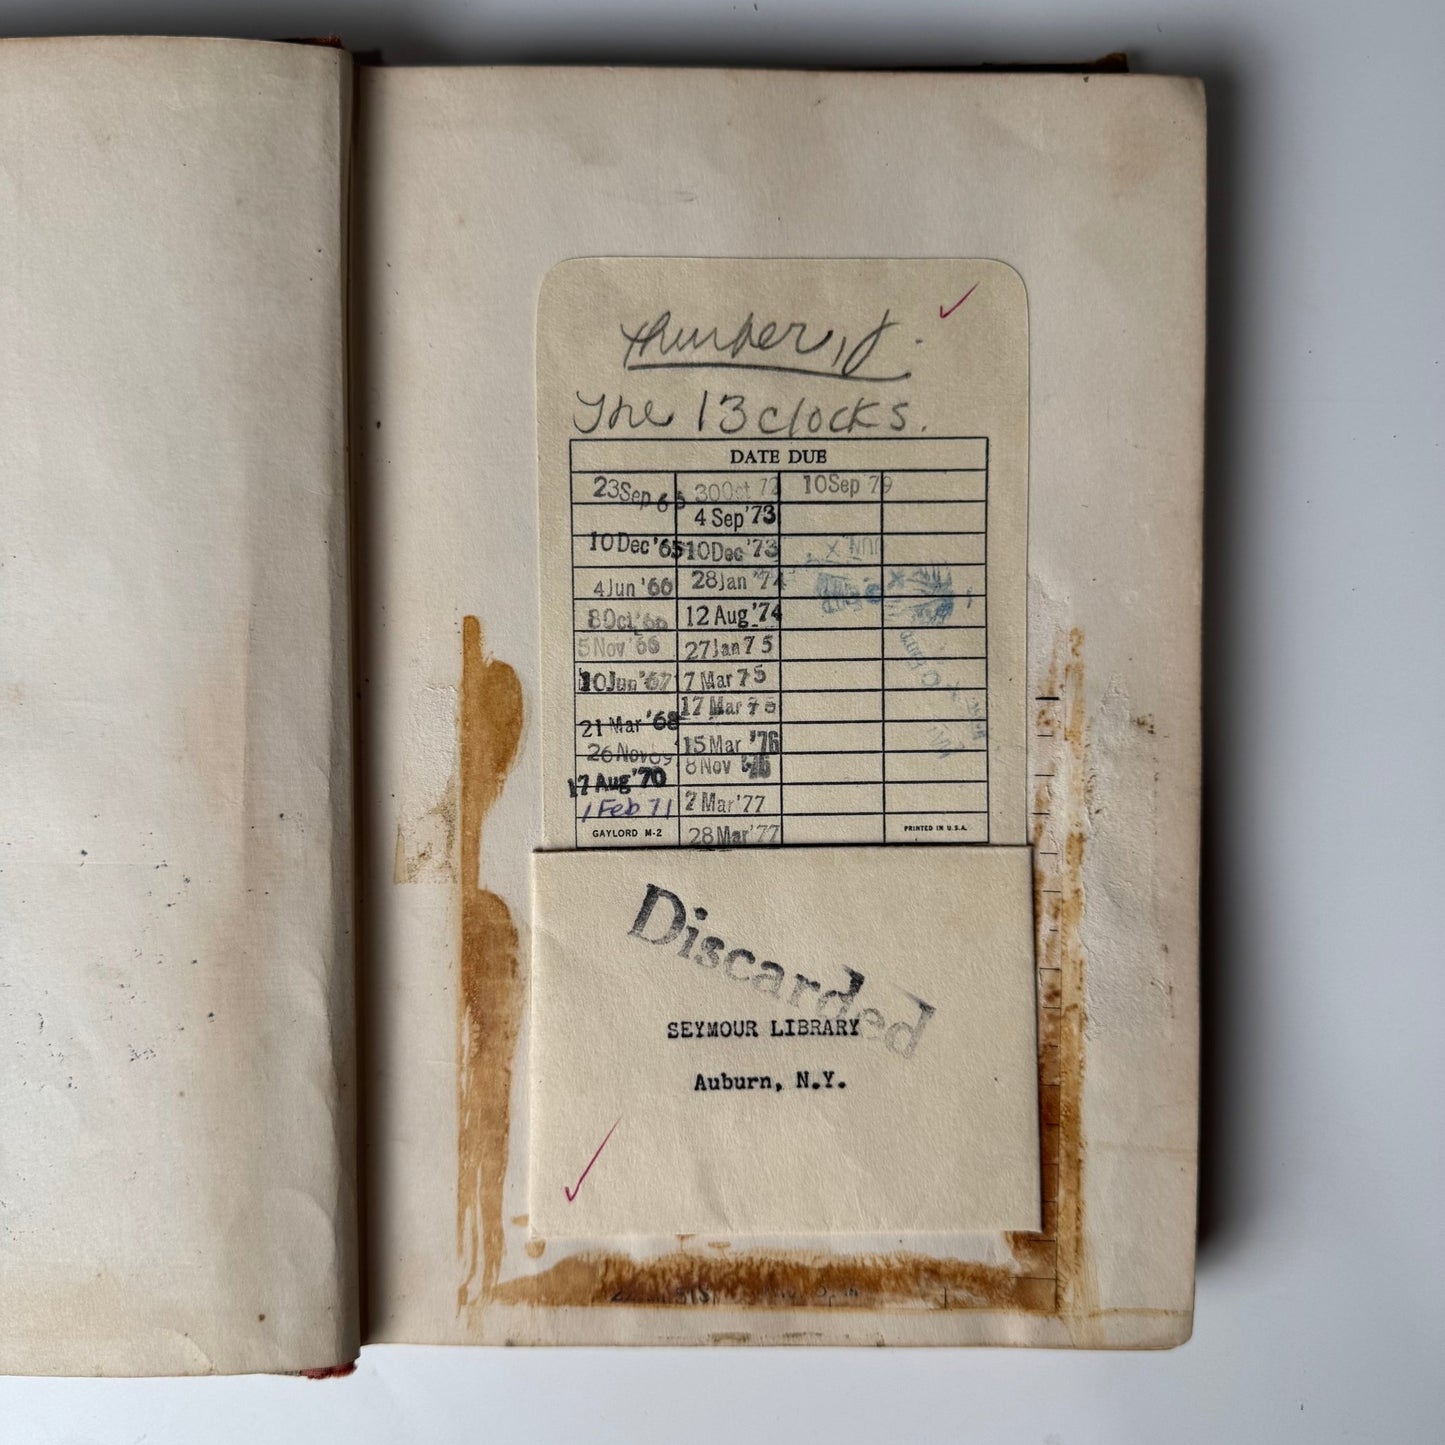 Thurber, J.
The 13 clocks.
DATE DUE
23 Sep 65
10 Dec '65
4 Jun '66
8 Oct '66
5 Nov '66
10 Jun '67
21 Mar '68
26 Nov 69
17 Aug '70
1 Feb 71
GAYLORD M-2
30 Oct 72
4 Sep '73
10 Dec '73
28 Jan '74
12 Aug '74
27 Jan 75
7 Mar 75
17 Mar 76
15 Mar '76
8 Nov '76
2 Mar '77
28 Mar '77
10 Sep '79
PRINTED IN U.S.A.
Discarded
SEYMOUR LIBRARY
Auburn, N.Y.